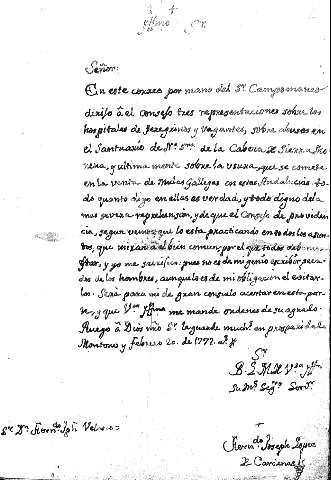 +
Yllmo Sr.
Señor:
En este correo por mano del Sr. Campomanes
dirijo â el Consejo tres representaciones sobre los
hospitales de Peregrinos y Vagantes, sobre abusos en
el Santuario de Na. Sra. de la Cabeza de Sierra Mo
rena, y ultimamente sobre la usura, que se comete
en la venta de Mulas Gallegas en estas Andalucias. to
do quanto digo en ellas es verdad, y todo digno de la
mas severa reprehension, y de que el Consejo de providen
cia, segun vemos que lo esta practicando en todos los asun
tos, que miran â el bien comun, por el que todos debemos
, y yo me sacrifico; pues no es de mi genio escribir peca
dos de los hombres, aunque lo es de mi obligacion el evitar
los. Sera para mi de gran consuelo acertar en esta par
te, y que Vsa Yllma me mande ordenes de su agrado.
Ruego â Dios mio Sr. le guarde muchos en prosperidad.
Montoro y Febrero 20. de 1772. as.
Sr.
B. L. M. de Vsa Yllma
Su mas Sego Servr.
Sr. Dn. Fernando
+
Ferndo Joseph Lopez
de Cardenas